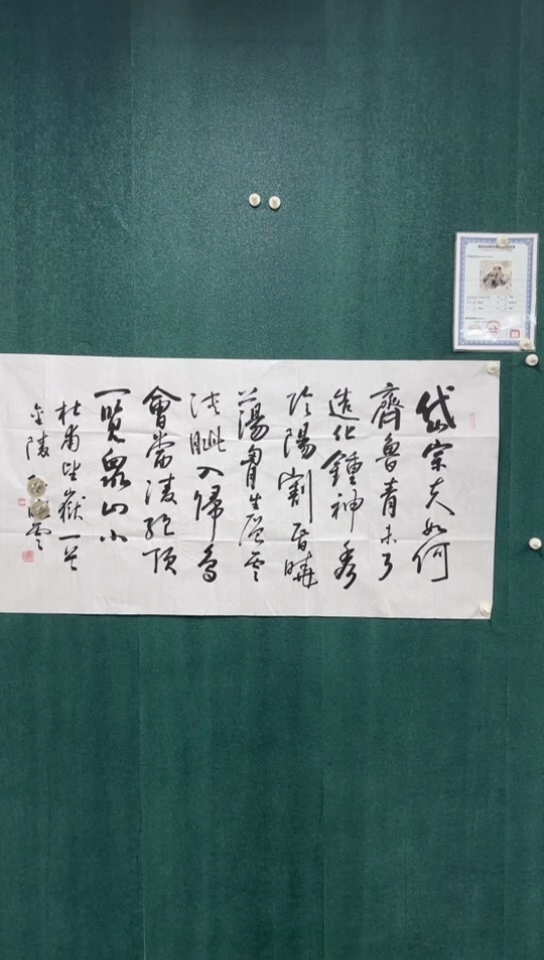 岱宗夫如何
齊魯青未了
造化鍾神秀
陰陽割昏曉
蕩胸生層雲
決眦入歸鳥
會當凌絕頂
一覽衆山小
杜甫望嶽一首
金陵 雲